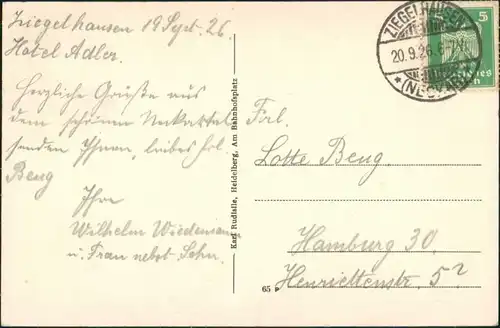 Ziegelhausen 19 Sept. 26
Hotel Adler.
Herzliche Grüße aus
dem schönen Neckartal
senden Ihnen, liebes Frl.
Beug
Ihre
Wilhelm Wiedemann
u. Frau nebst Sohn.
Karl Rudisile, Heidelberg, Am Bahnhofsplatz
65 P
ZIEGELHAUSEN
20.9.26.
5
Frl.
Lotte Beug
Hamburg 30.
Henriettenstr. 5²